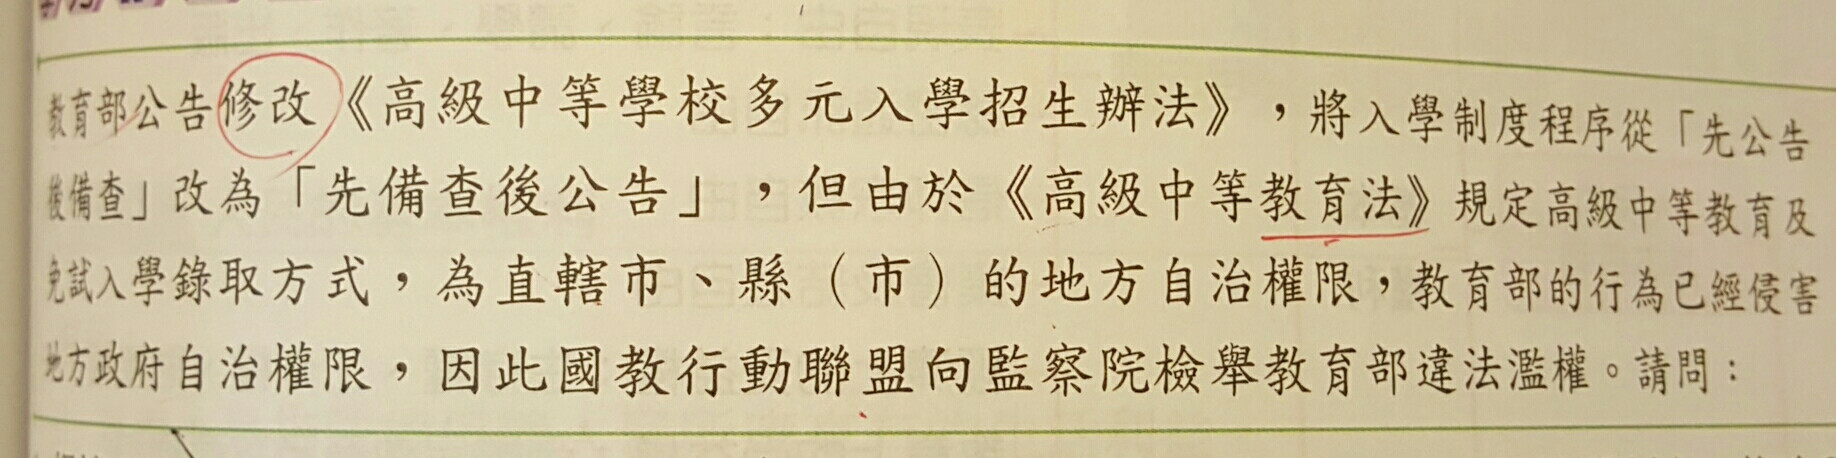 教育部公告修改《高級中等學校多元入學招生辦法》，將入學制度程序從「先公告
後備查」改為「先備查後公告」，但由於《高級中等教育法》規定高級中等教育及
免試入學錄取方式，為直轄市、縣（市）的地方自治權限，教育部的行為已經侵害
地方政府自治權限，因此國教行動聯盟向監察院檢舉教育部違法濫權。請問：